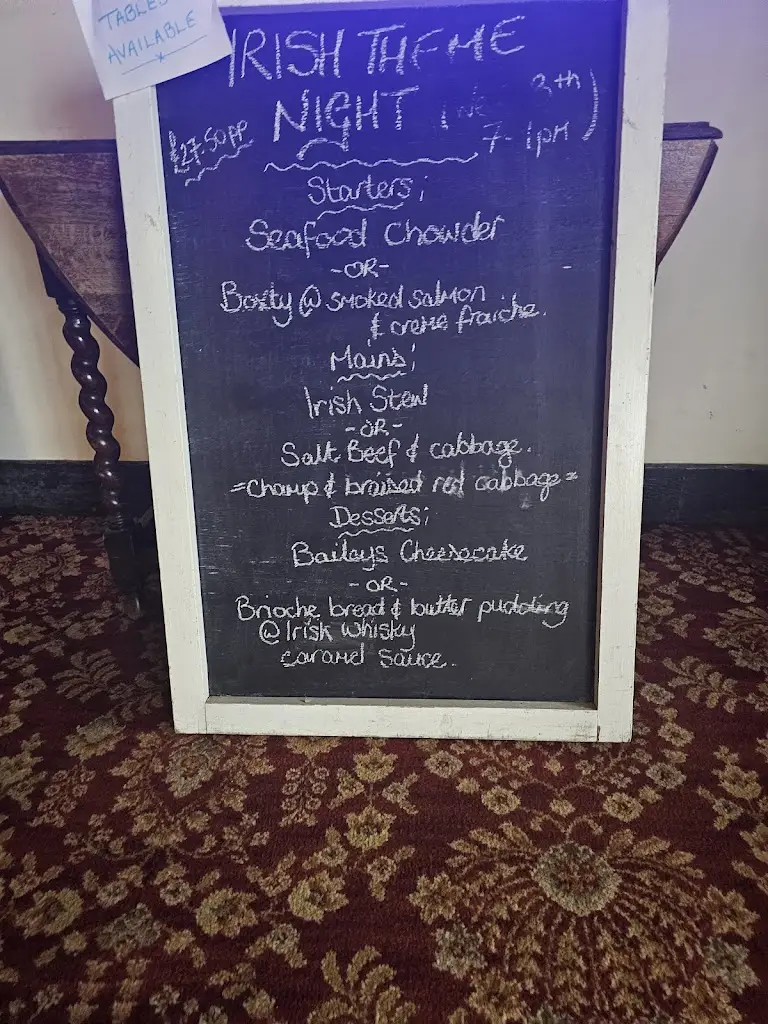 TABLES
AVAILABLE
IRISH THEME
NIGHT
£27.50pp
Starters;
Seafood Chowder
-OR-
Boxty @ smoked salmon
& creme fraiche.
Mains;
Irish Stew
-OR-
Salt Beef & cabbage.
=Champ & braised red cabbage=
Desserts;
Baileys Cheesecake
-OR-
Brioche bread & butter pudding
@ Irish whisky
caramel sauce.